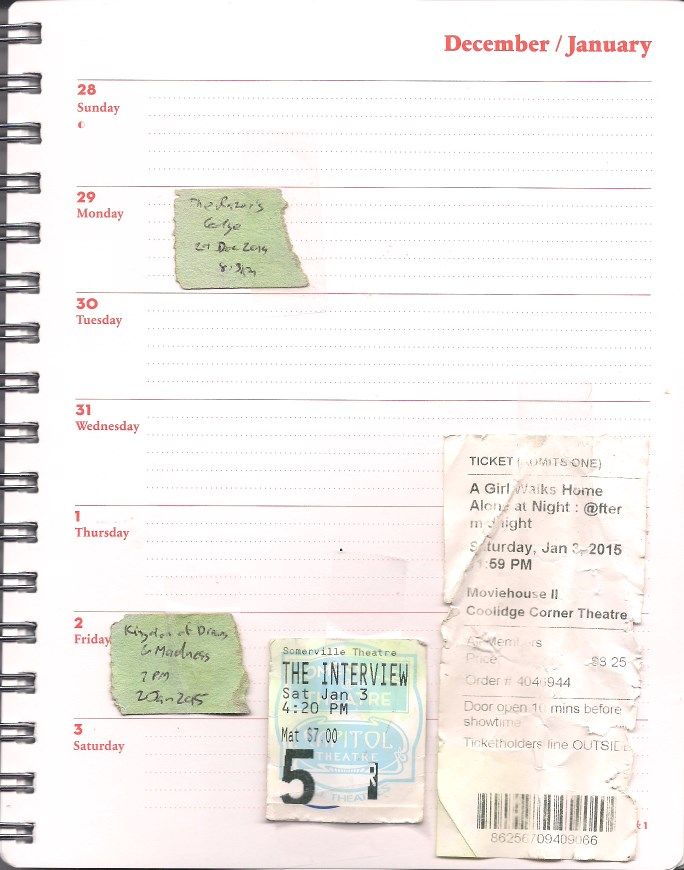 December / January
28
Sunday
29
Monday
The Razor's
Edge
29 Dec 2014
30
Tuesday
31
Wednesday
1
Thursday
2
Friday
Kingdom of Dreams
& Madness
7 PM
2 Jan 2015
3
Saturday
Somerville Theatre
THE INTERVIEW
Sat Jan 3
4:20 PM
Mat $7.00
CAPITOL
THEATRE
5
TICKET (ADMITS ONE)
A Girl Walks Home
Alone at Night : @fter
midnight
Saturday, Jan 3, 2015
:59 PM
Moviehouse II
Coolidge Corner Theatre
Members
Price $8.25
Order # 4046944
Door open 10 mins before
showtime
Ticketholders line OUTSIDE
86256709409066